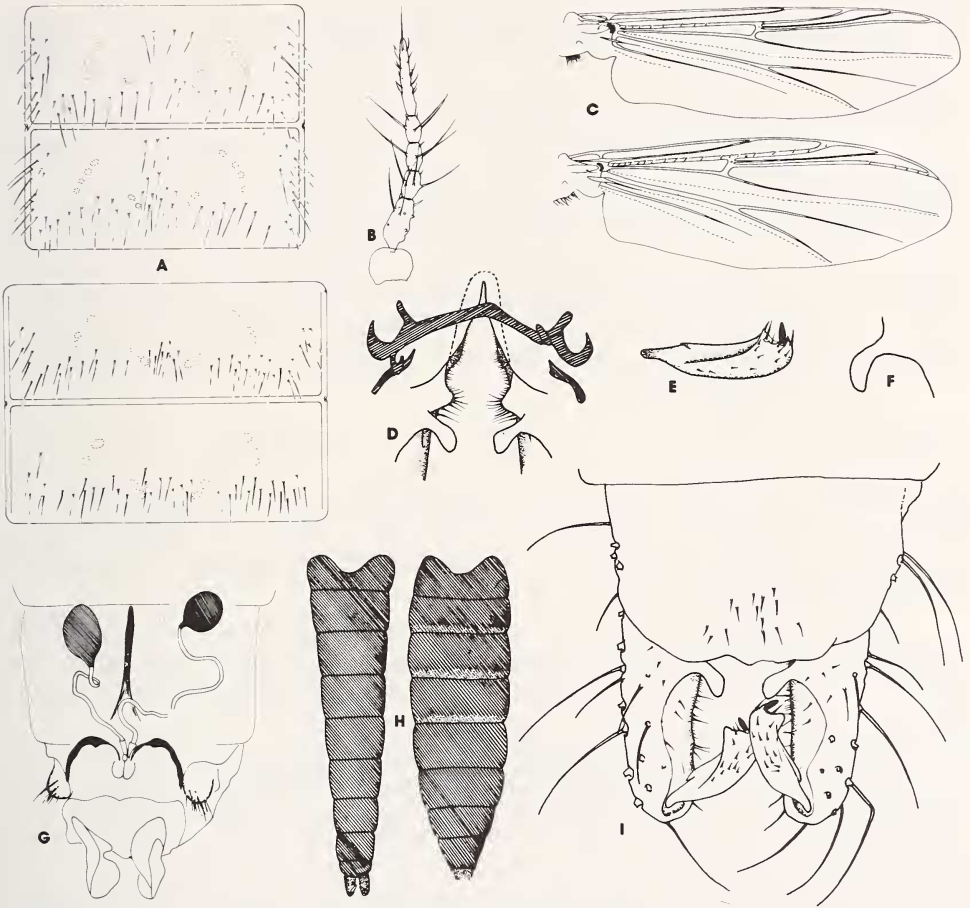 A
B
C
D
E
F
G
H
I